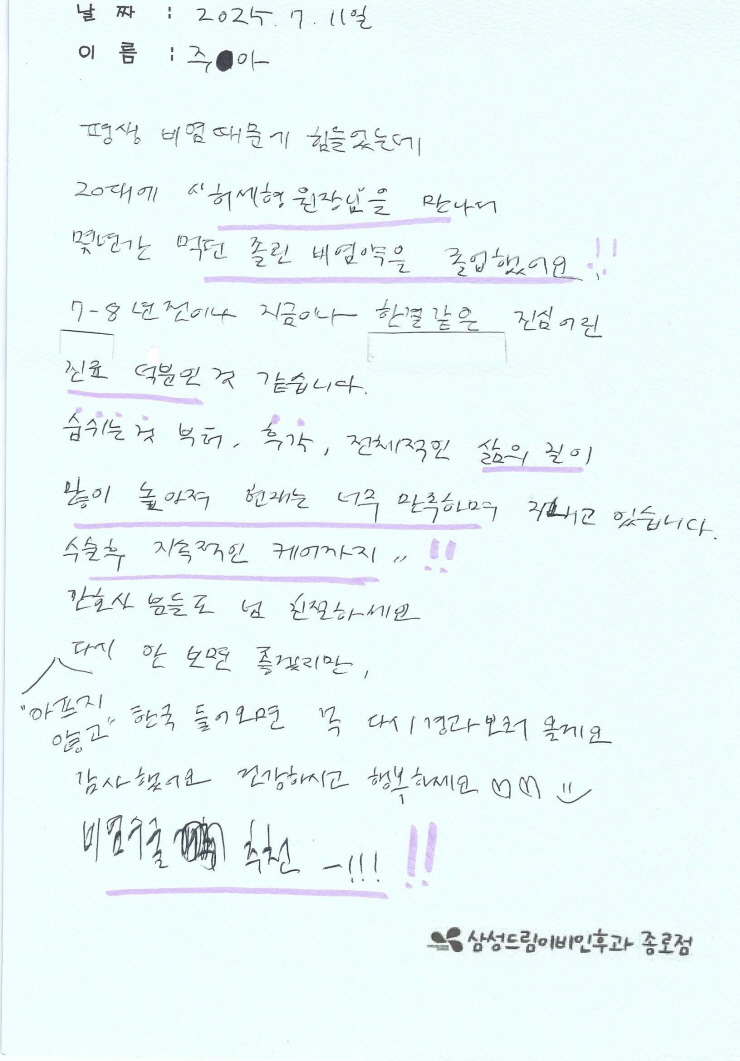 날 짜 : 2025. 7. 11일
이 름 : 주●아
평생 비염때문게 힘들었는데
20대에 허세형원장님을 만나서
몇년간 먹던 졸린 비염약을 졸업했어요!!
7-8년전이나 지금이나 한결같은 진심어린
진료 덕분인 것 같습니다.
숨쉬는것 부터, 후각, 전체적인 삶의 질이
많이 높아져 현재는 너무 만족하며 지내고 있습니다.
수술후 지속적인 케어까지 ,, !!
간호사 분들도 넘 친절하세요
다시 안 보면 좋겠지만,
"아프지 않고" 한국 들어오면 꼭 다시 경과보러 올게요
감사했어요 건강하시고 행복하세요 ♡♡
비염수술 추천 -!!! !!
삼성드림이비인후과 종로점